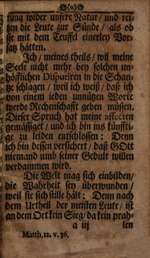 zung wider unsere Natur / und rei-
sen die Leute zur Sünde / als ob
sie mit dem Teuffel einerley Vor-
satz hätten.
Ich / meines theils / wil meine
Seele nicht mehr bey solchen un-
höfflichen Discursen in die Schan-
tze schlagen / weil ich weiß / daß ich
von einem jeden unnützen Worte
werde Rechenschafft geben müssen.
Dieser Spruch hat meine
gemäßiget / und ich bin ins künffti-
ge zu leiden entschlossen: Denn
ich bin dessen versichert / daß GOtt
niemand umb seiner Gedult willen
verdammen wird.
Die Welt mag sich einbilden /
die Wahrheit sey überwunden /
weil sie sich stille hält: Denn nach
dem Urtheil der meisten Leute / ist
an dem Ort kein Sieg / da kein prah-
a iij len
Matth. 12. v. 36.